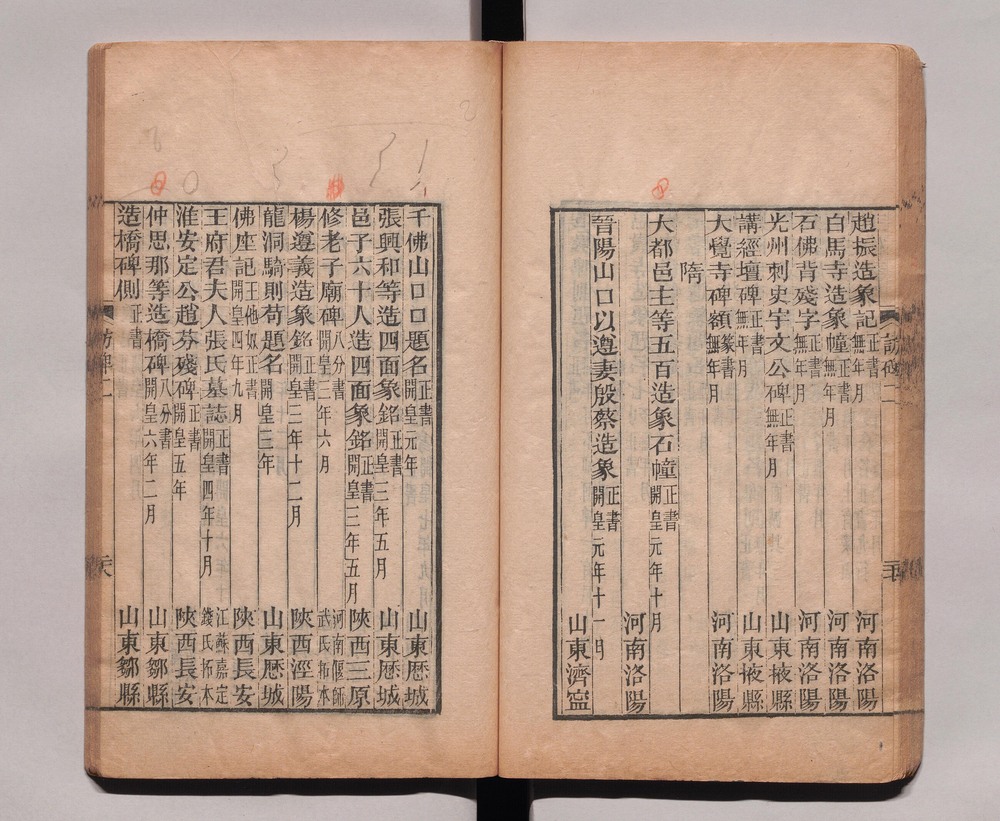 趙振造象記正書無年月 河南洛陽
白馬寺造象幢正書無年月 河南洛陽
石佛背殘字正書無年月 河南洛陽
光州刺史宇文公碑正書無年月 山東掖縣
講經壇碑正書無年月 山東掖縣
大覺寺碑額篆書無年月 河南洛陽
隋
大都邑主等五百造象石幢正書開皇元年十月 河南洛陽
晉陽山口口以遵妻殷蔡造象正書開皇元年十一月 山東濟寧
千佛山口口題名正書開皇元年 山東歷城
張興和等造四面象銘正書開皇三年五月 山東歷城
邑子六十人造四面象銘正書開皇三年五月 陝西三原
修老子廟碑八分書開皇三年六月 河南偃師武氏拓本
楊遵義造象銘正書開皇三年十二月 陝西涇陽
龍洞騎則苟題名開皇三年 山東歷城
佛座記王他奴正書開皇四年九月 陝西長安
王府君夫人張氏墓誌正書開皇四年十月 江蘇嘉定錢氏拓本
淮安定公趙芬殘碑正書開皇五年 陝西長安
仲思那等造橋碑八分書開皇六年二月 山東鄒縣
造橋碑側正書 山東鄒縣
訪碑二